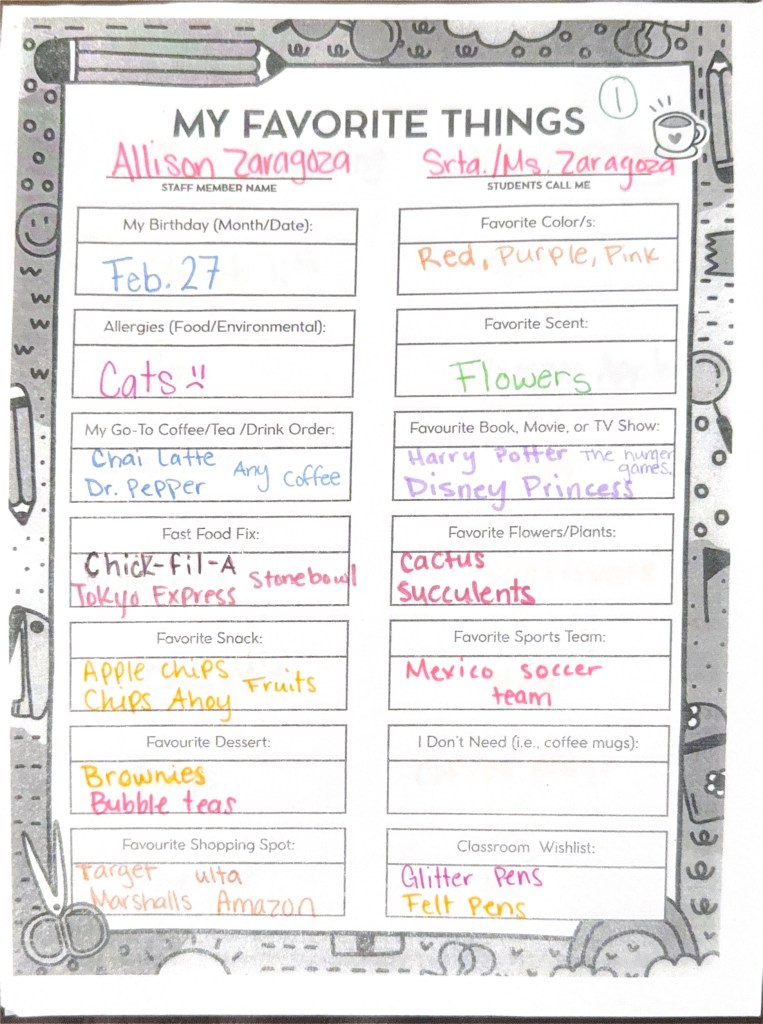 1
MY FAVORITE THINGS
Allison Zaragoza
STAFF MEMBER NAME
Srta./Ms. Zaragoza
STUDENTS CALL ME
My Birthday (Month/Date):
Feb. 27
Favorite Color/s:
Red, Purple, Pink
Allergies (Food/Environmental):
Cats
Favorite Scent:
Flowers
My Go-To Coffee/Tea /Drink Order:
Chai Latte
Any Coffee
Dr. Pepper
Favourite Book, Movie, or TV Show:
Harry Potter
The hunger
games.
Disney Princess
Fast Food Fix:
Chick-fil-A
Stonebowl
Tokyo Express
Favorite Flowers/Plants:
Cactus
Succulents
Favorite Snack:
Apple chips
Fruits
Chips Ahoy
Favorite Sports Team:
Mexico soccer
team
Favourite Dessert:
Brownies
Bubble teas
I Don't Need (i.e., coffee mugs):
Favourite Shopping Spot:
Target ulta
Marshalls Amazon
Classroom Wishlist:
Glitter Pens
Felt Pens